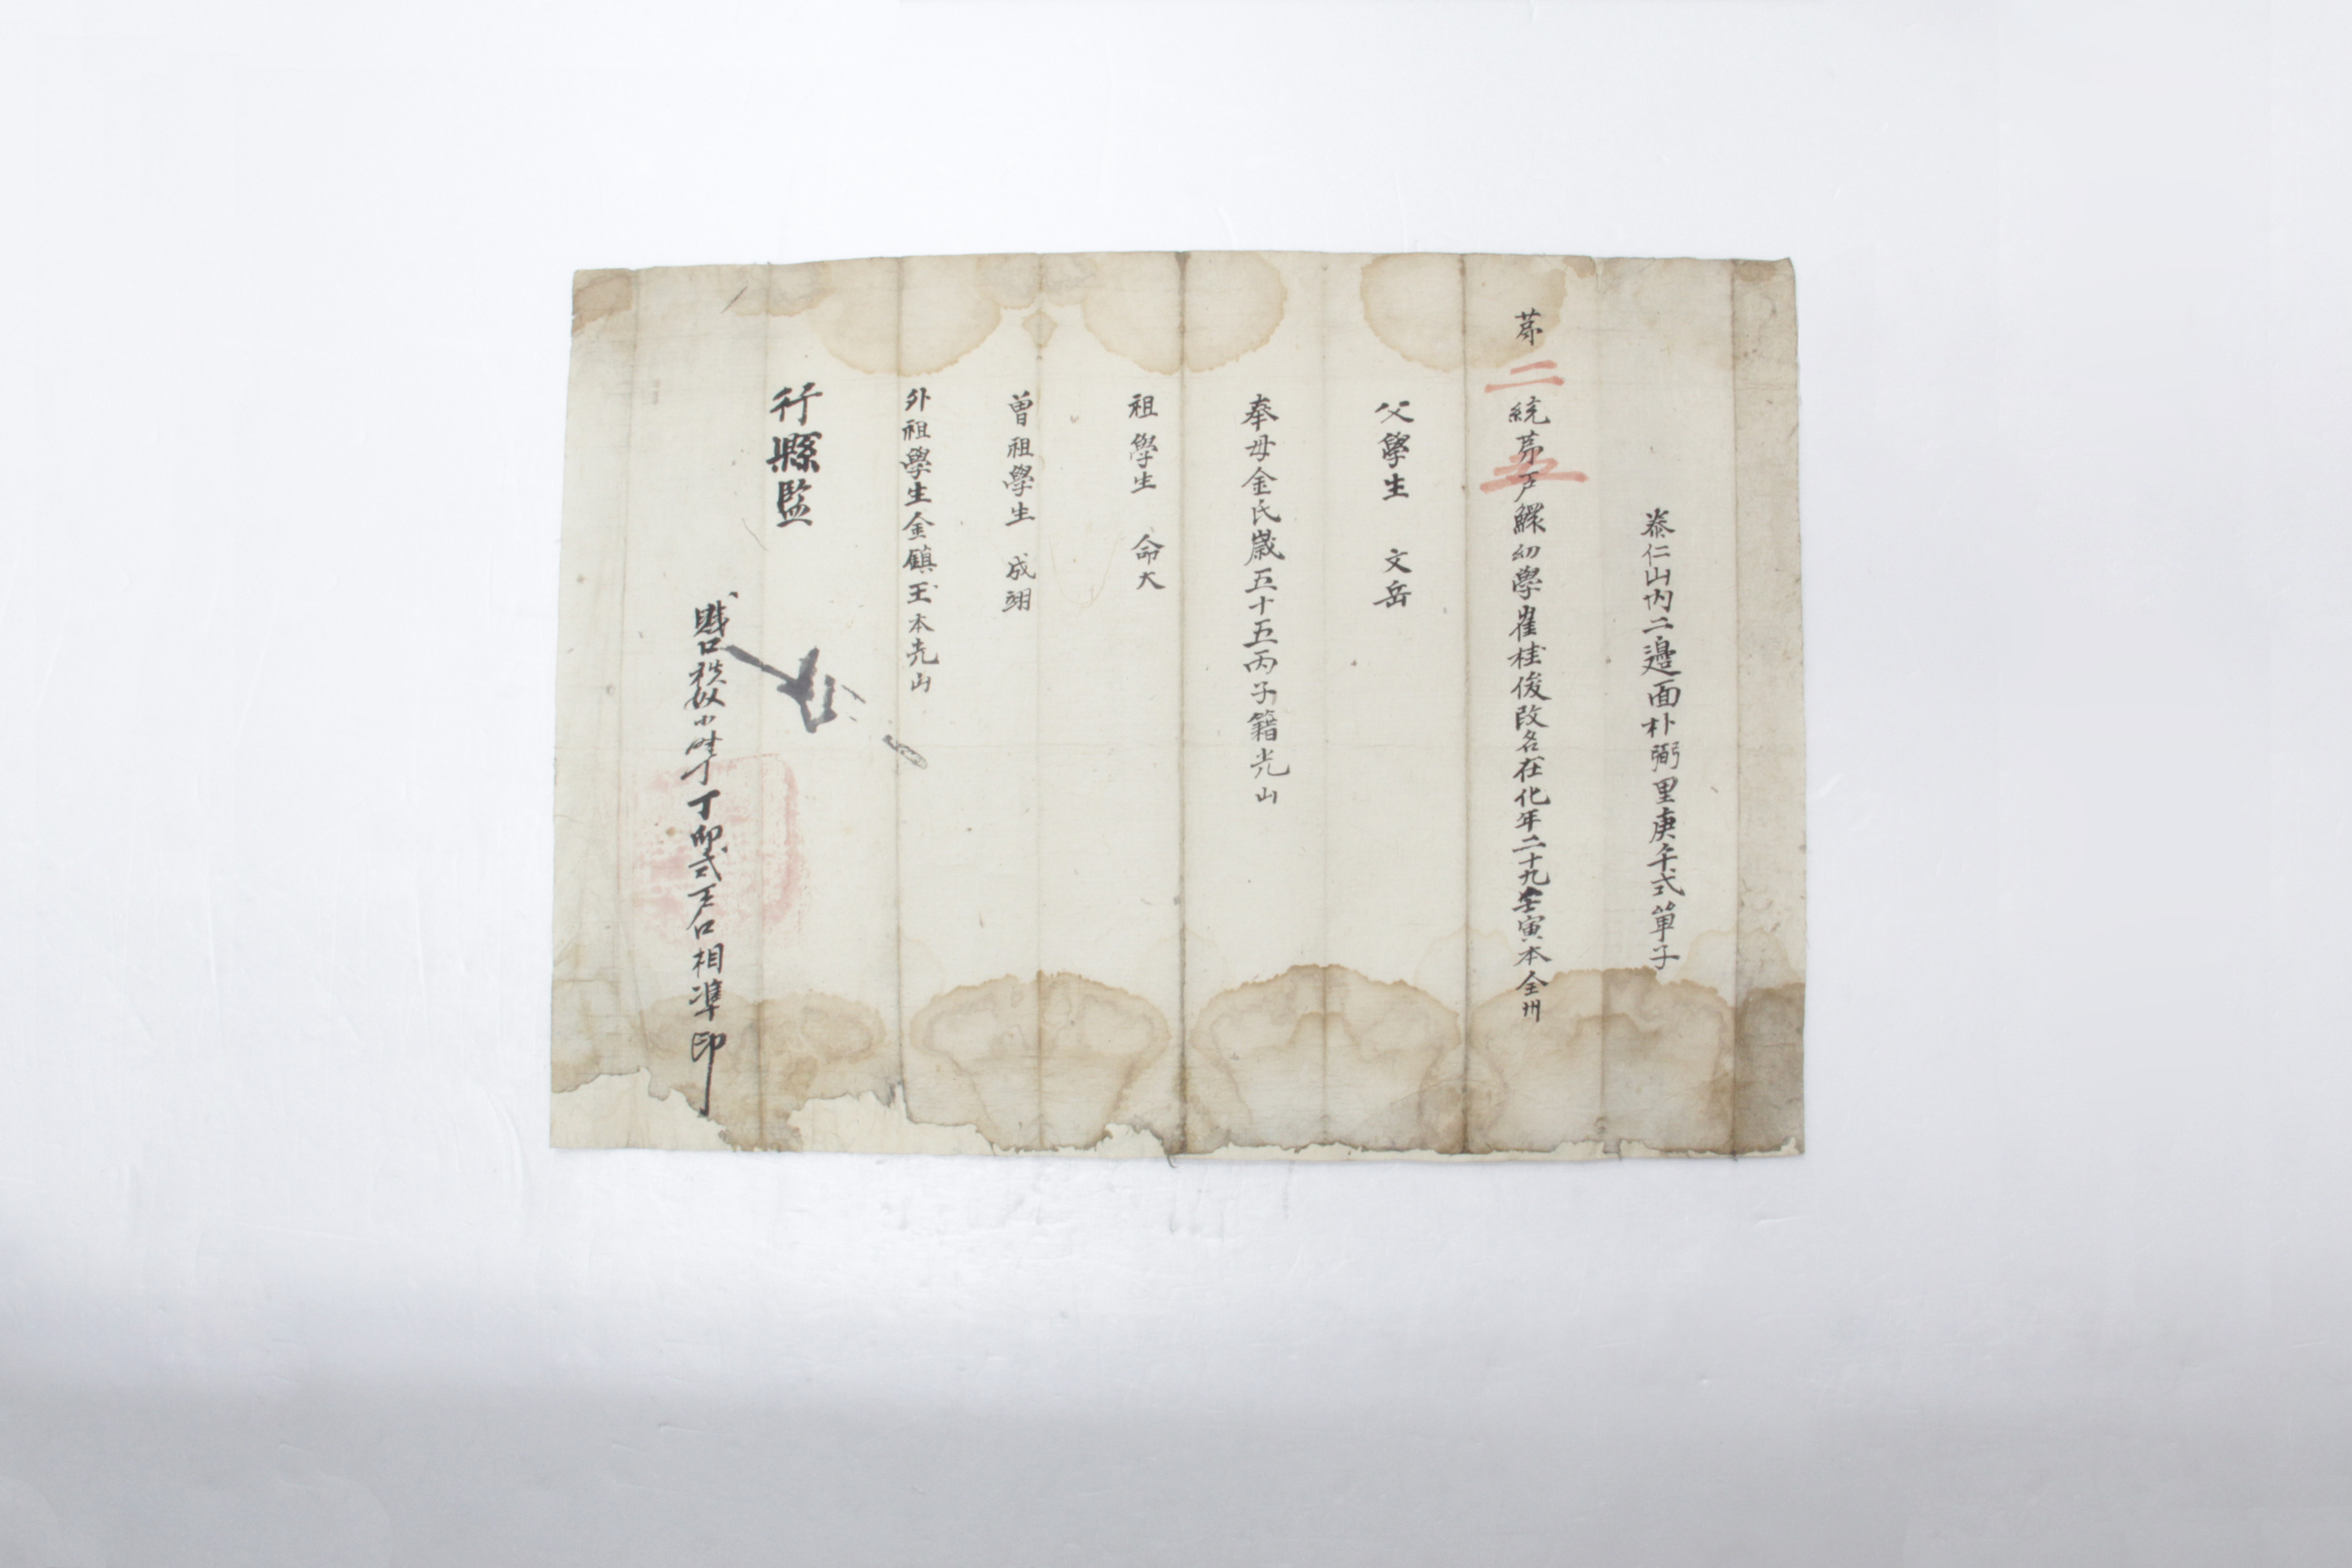 泰仁山內二邊面朴弼里庚午式單子
第二統第五戶鰥幼學崔桂俊改名在化年二十九壬寅本全州
父學生 文岳
奉母金氏歲五十五丙子籍光山
祖學生 命大
曾祖學生 成翊
外祖學生金鎮玉本光山
行縣監
賤口秩奴小 丁卯式戶口相準印